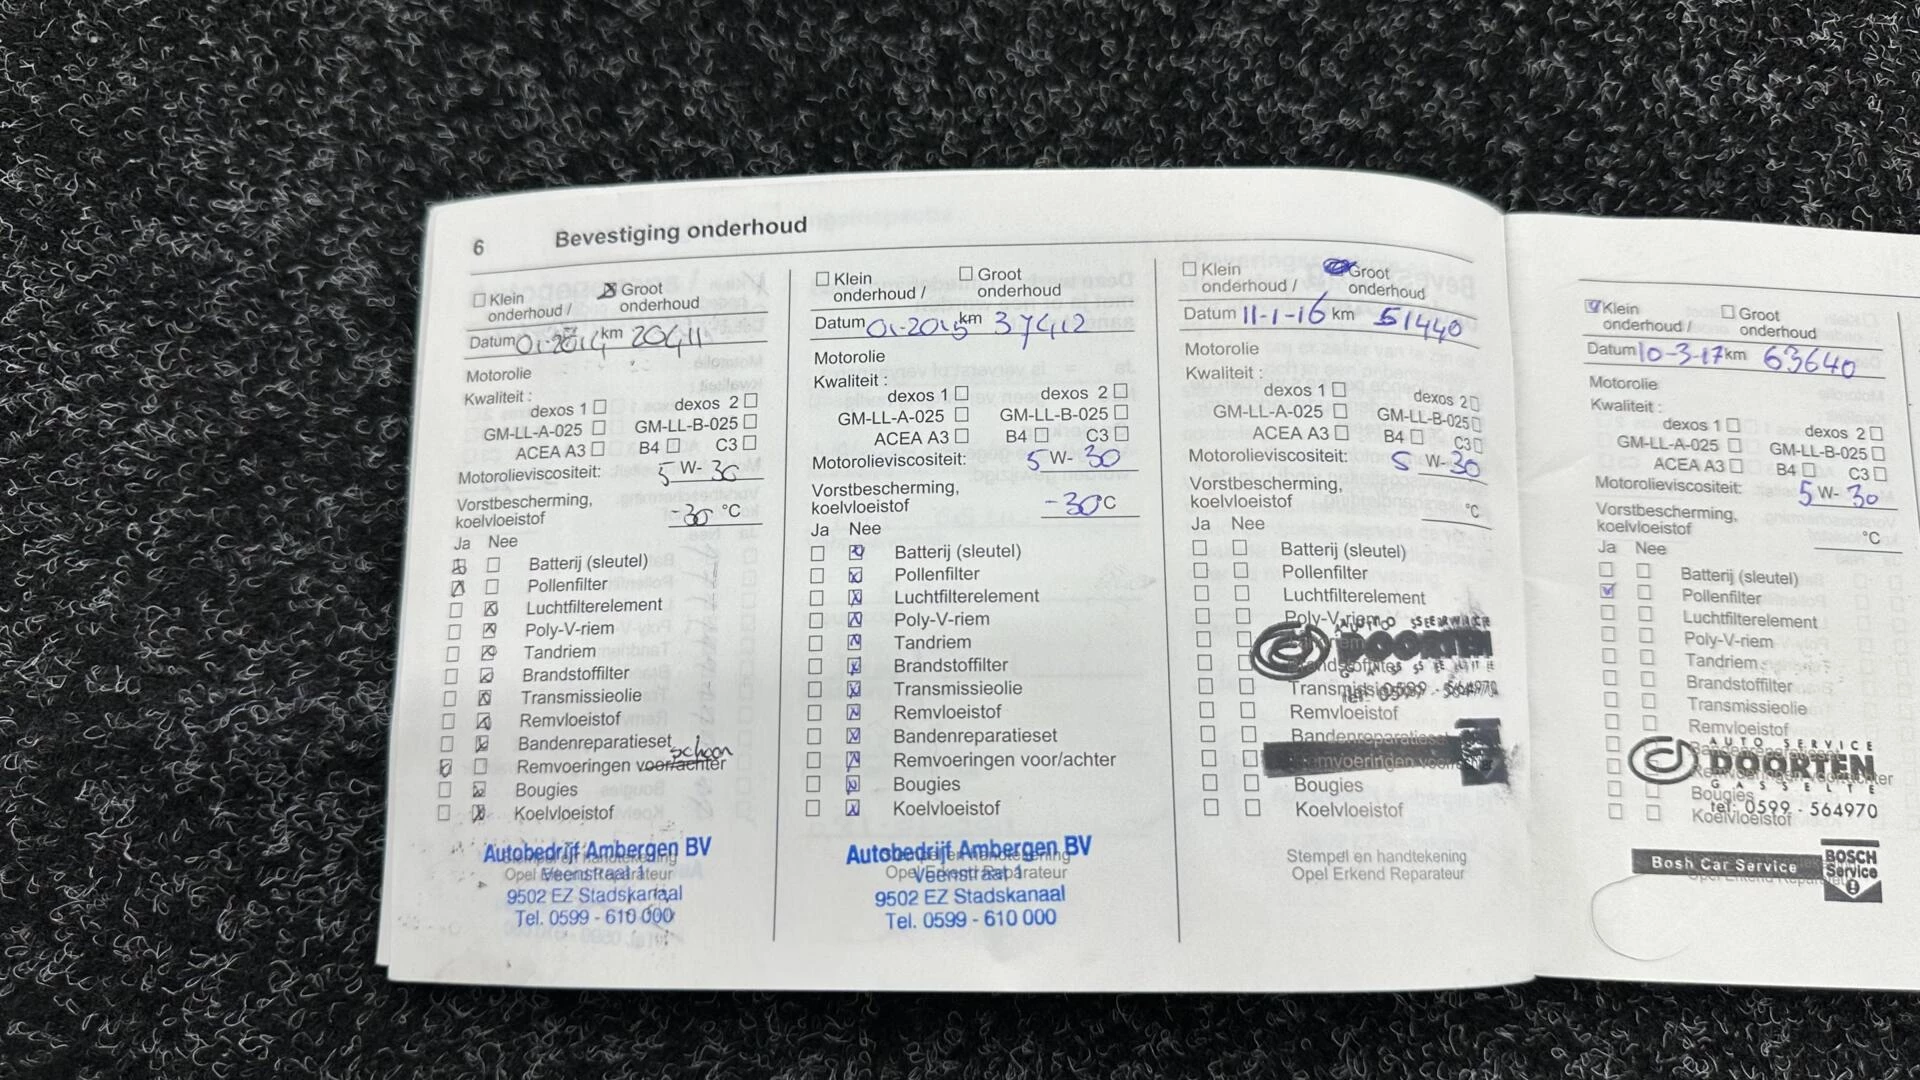 6 Bevestiging onderhoud
Klein onderhoud / Groot onderhoud
Datum 01-2014 km 20411
Motorolie
Kwaliteit :
dexos 1 dexos 2
GM-LL-A-025 GM-LL-B-025
ACEA A3 B4 C3
Motorolieviscositeit: 5 W- 30
Vorstbescherming,
koelvloeistof -30 °C
Ja Nee
Batterij (sleutel)
Pollenfilter
Luchtfilterelement
Poly-V-riem
Tandriem
Brandstoffilter
Transmissieolie
Remvloeistof
Bandenreparatieset
schoon
Remvoeringen voor/achter
Bougies
Koelvloeistof
Autobedrijf Ambergen BV
Stempel en handtekening
Opel Erkend Reparateur
Veenstraat 1
9502 EZ Stadskanaal
Tel. 0599 - 610 000
Klein onderhoud / Groot onderhoud
Datum 01-2015 km 37412
Motorolie
Kwaliteit :
dexos 1 dexos 2
GM-LL-A-025 GM-LL-B-025
ACEA A3 B4 C3
Motorolieviscositeit: 5 W- 30
Vorstbescherming,
koelvloeistof -30°C
Ja Nee
Batterij (sleutel)
Pollenfilter
Luchtfilterelement
Poly-V-riem
Tandriem
Brandstoffilter
Transmissieolie
Remvloeistof
Bandenreparatieset
Remvoeringen voor/achter
Bougies
Koelvloeistof
Autobedrijf Ambergen BV
Stempel en handtekening
Opel Erkend Reparateur
Veenstraat 1
9502 EZ Stadskanaal
Tel. 0599 - 610 000
Klein onderhoud / Groot onderhoud
Datum 11-1-16 km 51440
Motorolie
Kwaliteit :
dexos 1 dexos 2
GM-LL-A-025 GM-LL-B-025
ACEA A3 B4 C3
Motorolieviscositeit: 5 W-30
Vorstbescherming,
koelvloeistof °C
Ja Nee
Batterij (sleutel)
Pollenfilter
Luchtfilterelement
Poly-V-riem
AUTO SERVICE
DOORTEN
GASSELTE
Brandstoffilter
Transmissieolie
tel: 0599 - 564970
Remvloeistof
Bandenreparatieset
Remvoeringen voor/achter
Bougies
Koelvloeistof
Stempel en handtekening
Opel Erkend Reparateur
Klein onderhoud / Groot onderhoud
Datum 10-3-17 km 63640
Motorolie
Kwaliteit :
dexos 1 dexos 2
GM-LL-A-025 GM-LL-B-025
ACEA A3 B4 C3
Motorolieviscositeit: 5 W- 30
Vorstbescherming,
koelvloeistof °C
Ja Nee
Batterij (sleutel)
Pollenfilter
Luchtfilterelement
Poly-V-riem
Tandriem
Brandstoffilter
Transmissieolie
Remvloeistof
AUTO SERVICE
DOORTEN
GASSELTE
Bougies
tel: 0599 - 564970
Koelvloeistof
Bosh Car Service
BOSCH
Service